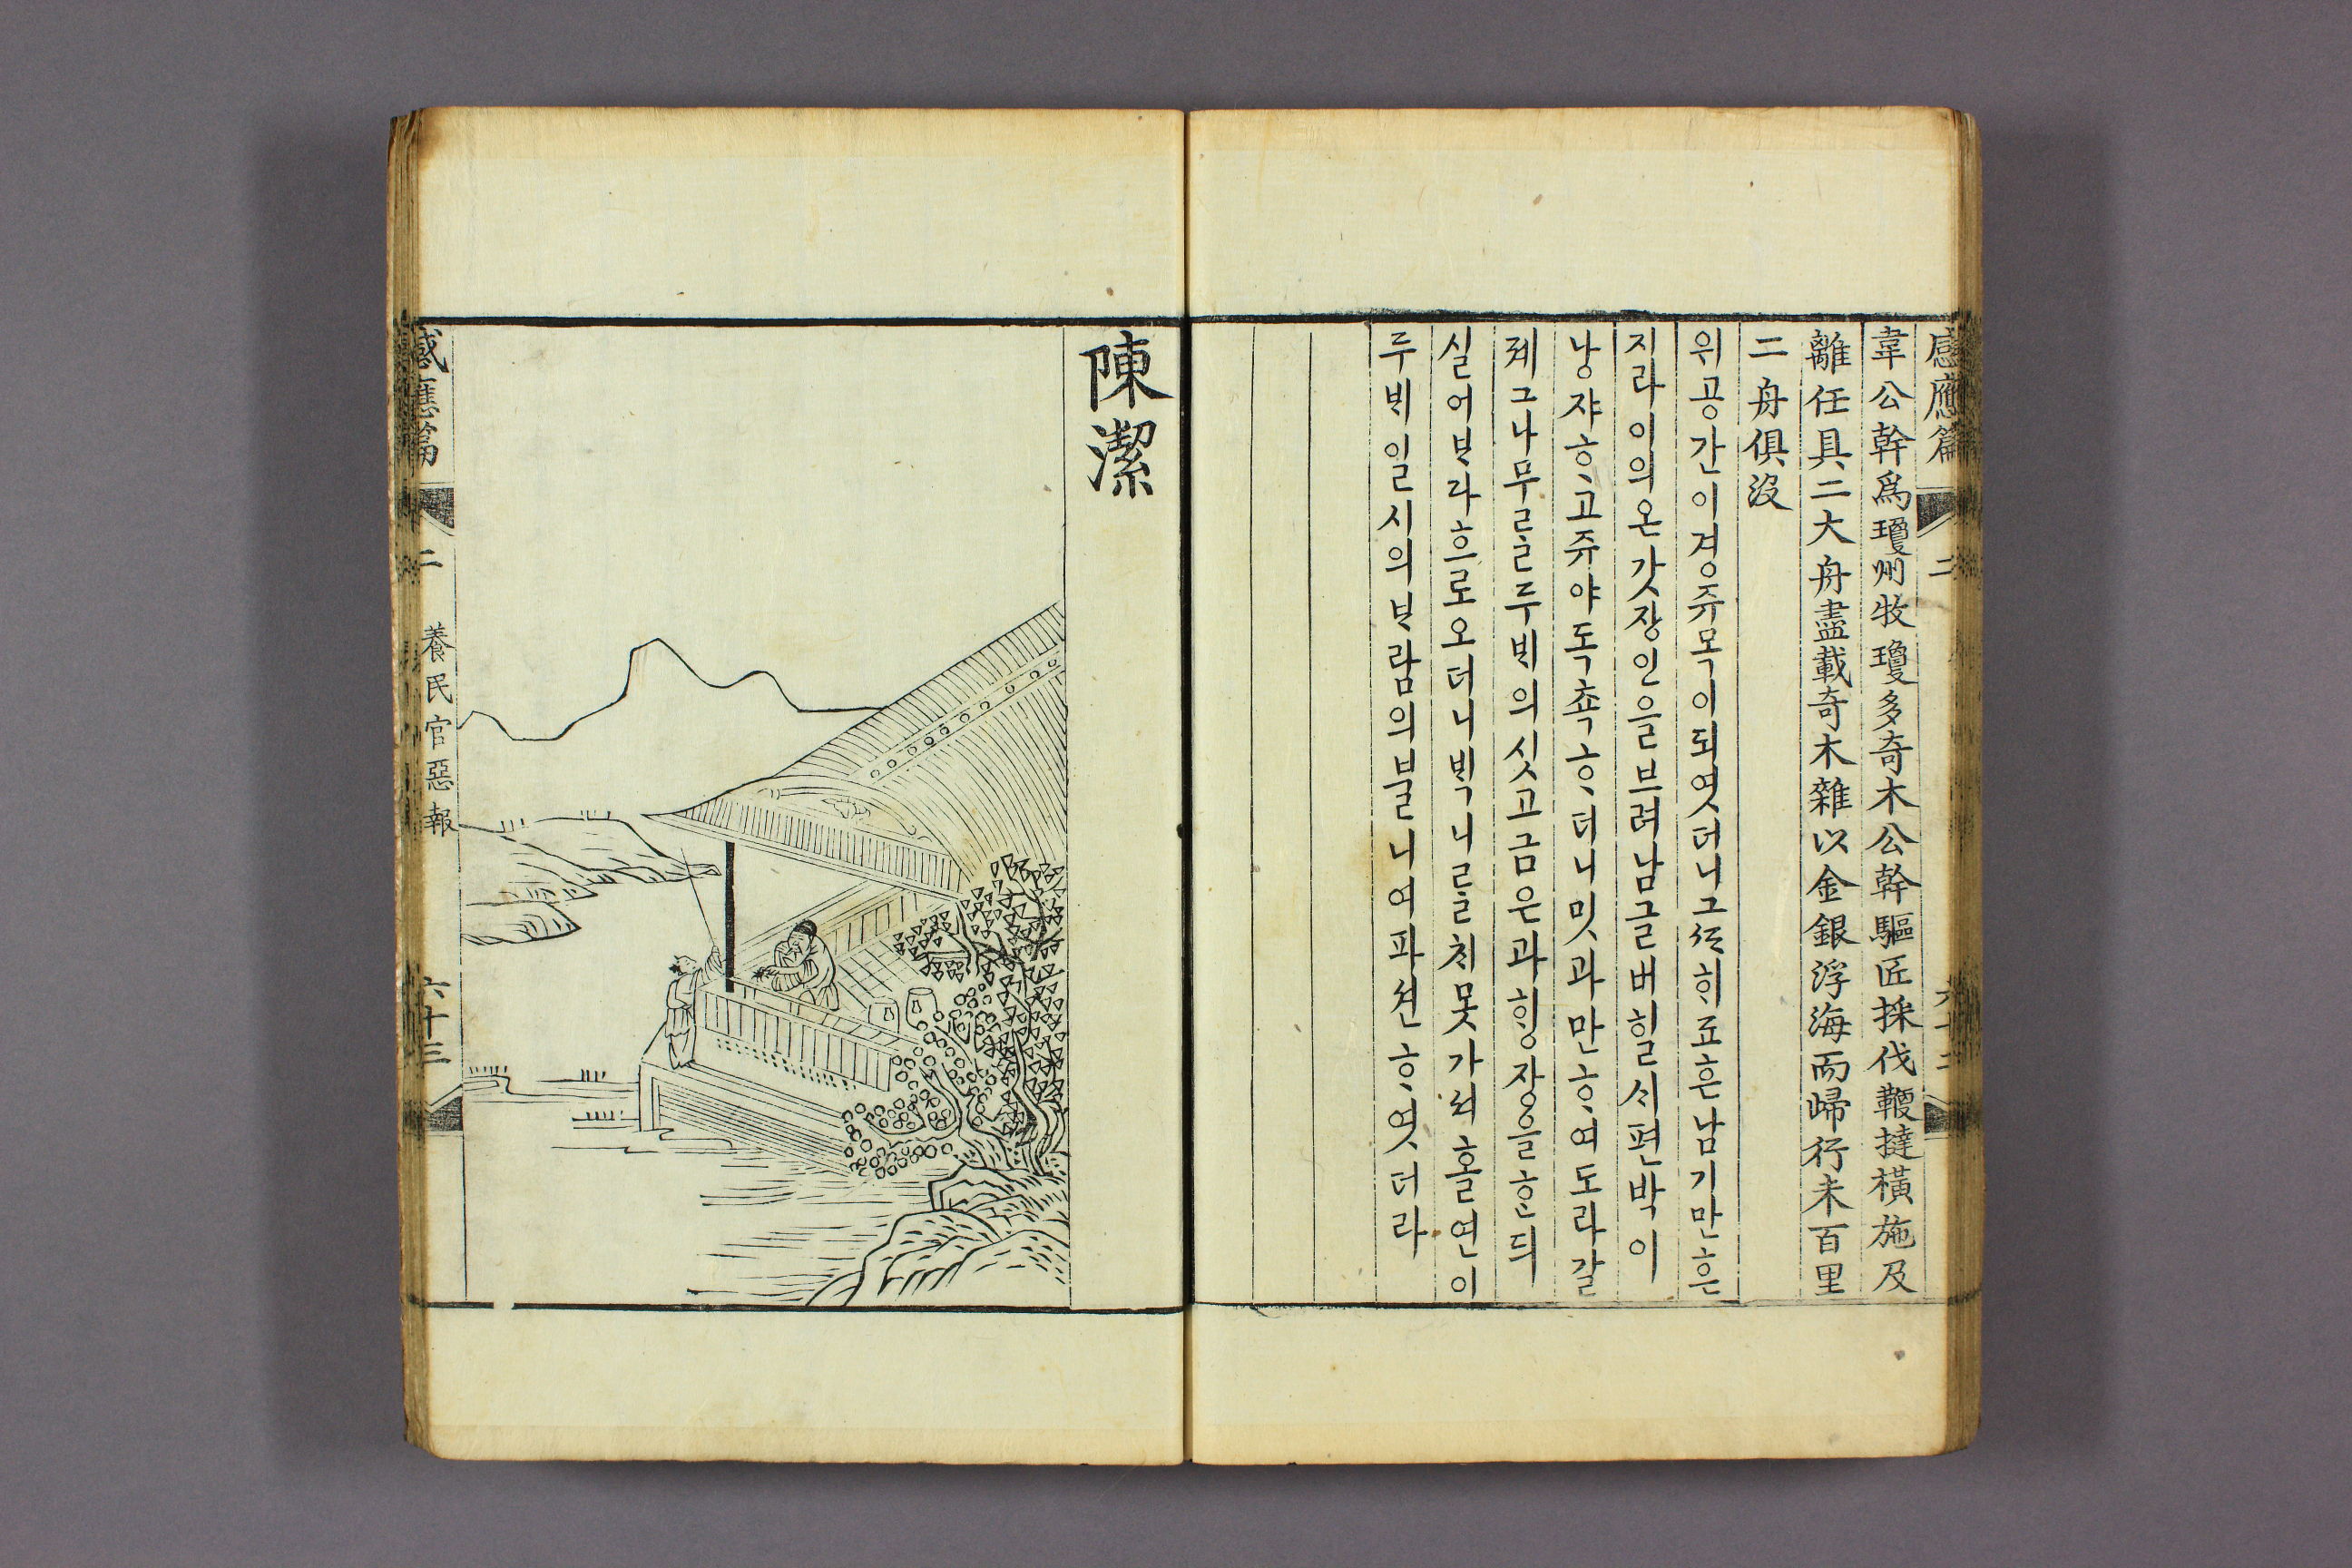 感應篇 二 六十二
韋公幹爲瓊州牧瓊多奇木公幹驅匠採伐鞭撻橫施及
離任具二大舟盡載奇木雜以金銀浮海而歸行未百里
二舟俱沒
위공간이경쥬목이되엿더니그ᄯᅡ희죠흔남기만흔
지라이의온갓쟝인을브려남글버힐ᄉᆡ편박이
낭쟈ᄒᆞ고쥬야독쵹ᄒᆞ더니밋과만ᄒᆞ여도라갈
졔그나무ᄅᆞᆯ두ᄇᆡ의싯고금은과ᄒᆡᆼ장을ᄒᆞᆫ듸
실어ᄇᆞ라흐로오더니ᄇᆡᆨ니ᄅᆞᆯ치못가셔홀연이
두ᄇᆡ일시의ᄇᆞ람의불니여파션ᄒᆞ엿더라
陳潔
感應篇 二 養民官惡報 六十三